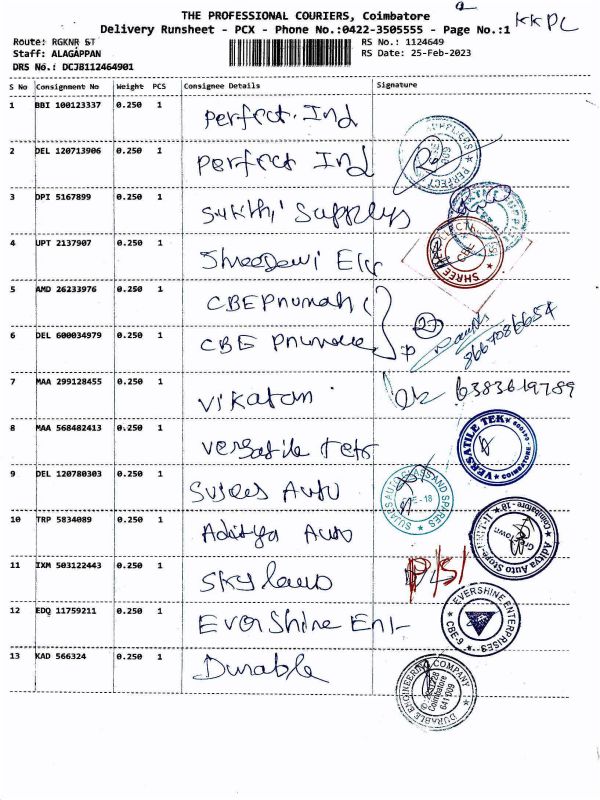 a
KKPL
THE PROFESSIONAL COURIERS, Coimbatore
Delivery Runsheet - PCX - Phone No.:0422-3505555 - Page No.:1
Route: RGKNR ST
RS No.: 1124649
Staff: ALAGAPPAN
RS Date: 25-Feb-2023
DRS No.: DCJB112464901
S No Consignment No Weight PCS Consignee Details Signature
1 BBI 100123337 0.250 1 Perfect. Ind
2 DEL 120713906 0.250 1 Perfect Ind
SUPPLIERS ★ PERFECT
3 DPI 5167899 0.250 1 Sukthi Supplys
4 UPT 2137907 0.250 1 Shreedewi Ele
★ SHREE
5 AMD 26233976 0.250 1 CBE
6 DEL 600034979 0.250 1 CBE
8667086654
7 MAA 299128455 0.250 1 Vikatan
6383619789
8 MAA 568482413 0.250 1 versatile
VERSATILE TEK ★ COIMBATORE
9 DEL 120780303 0.250 1 Sujees Auto
SUJAIS AUTO GLASS AND SPARES ★ CBE-18
10 TRP 5834089 0.250 1 Aditya Auto
★ Aditya Auto Store-UNIT-II ★ Coimbatore-18
11 IXM 503122443 0.250 1 Sky
12 EDQ 11759211 0.250 1 EverShine Ent
EVERSHINE ENTERPRISES CBE-9
13 KAD 566324 0.250 1 Durable
DURABLE ENGINEERING COMPANY ★ Coimbatore 641 009